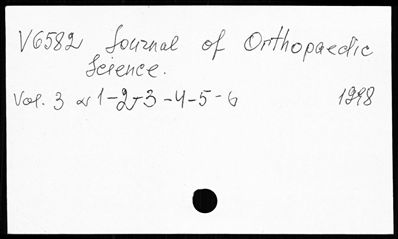 V6582 Journal of Orthopaedic
Science.
Vol. 3 № 1-2-3-4-5-6 1998